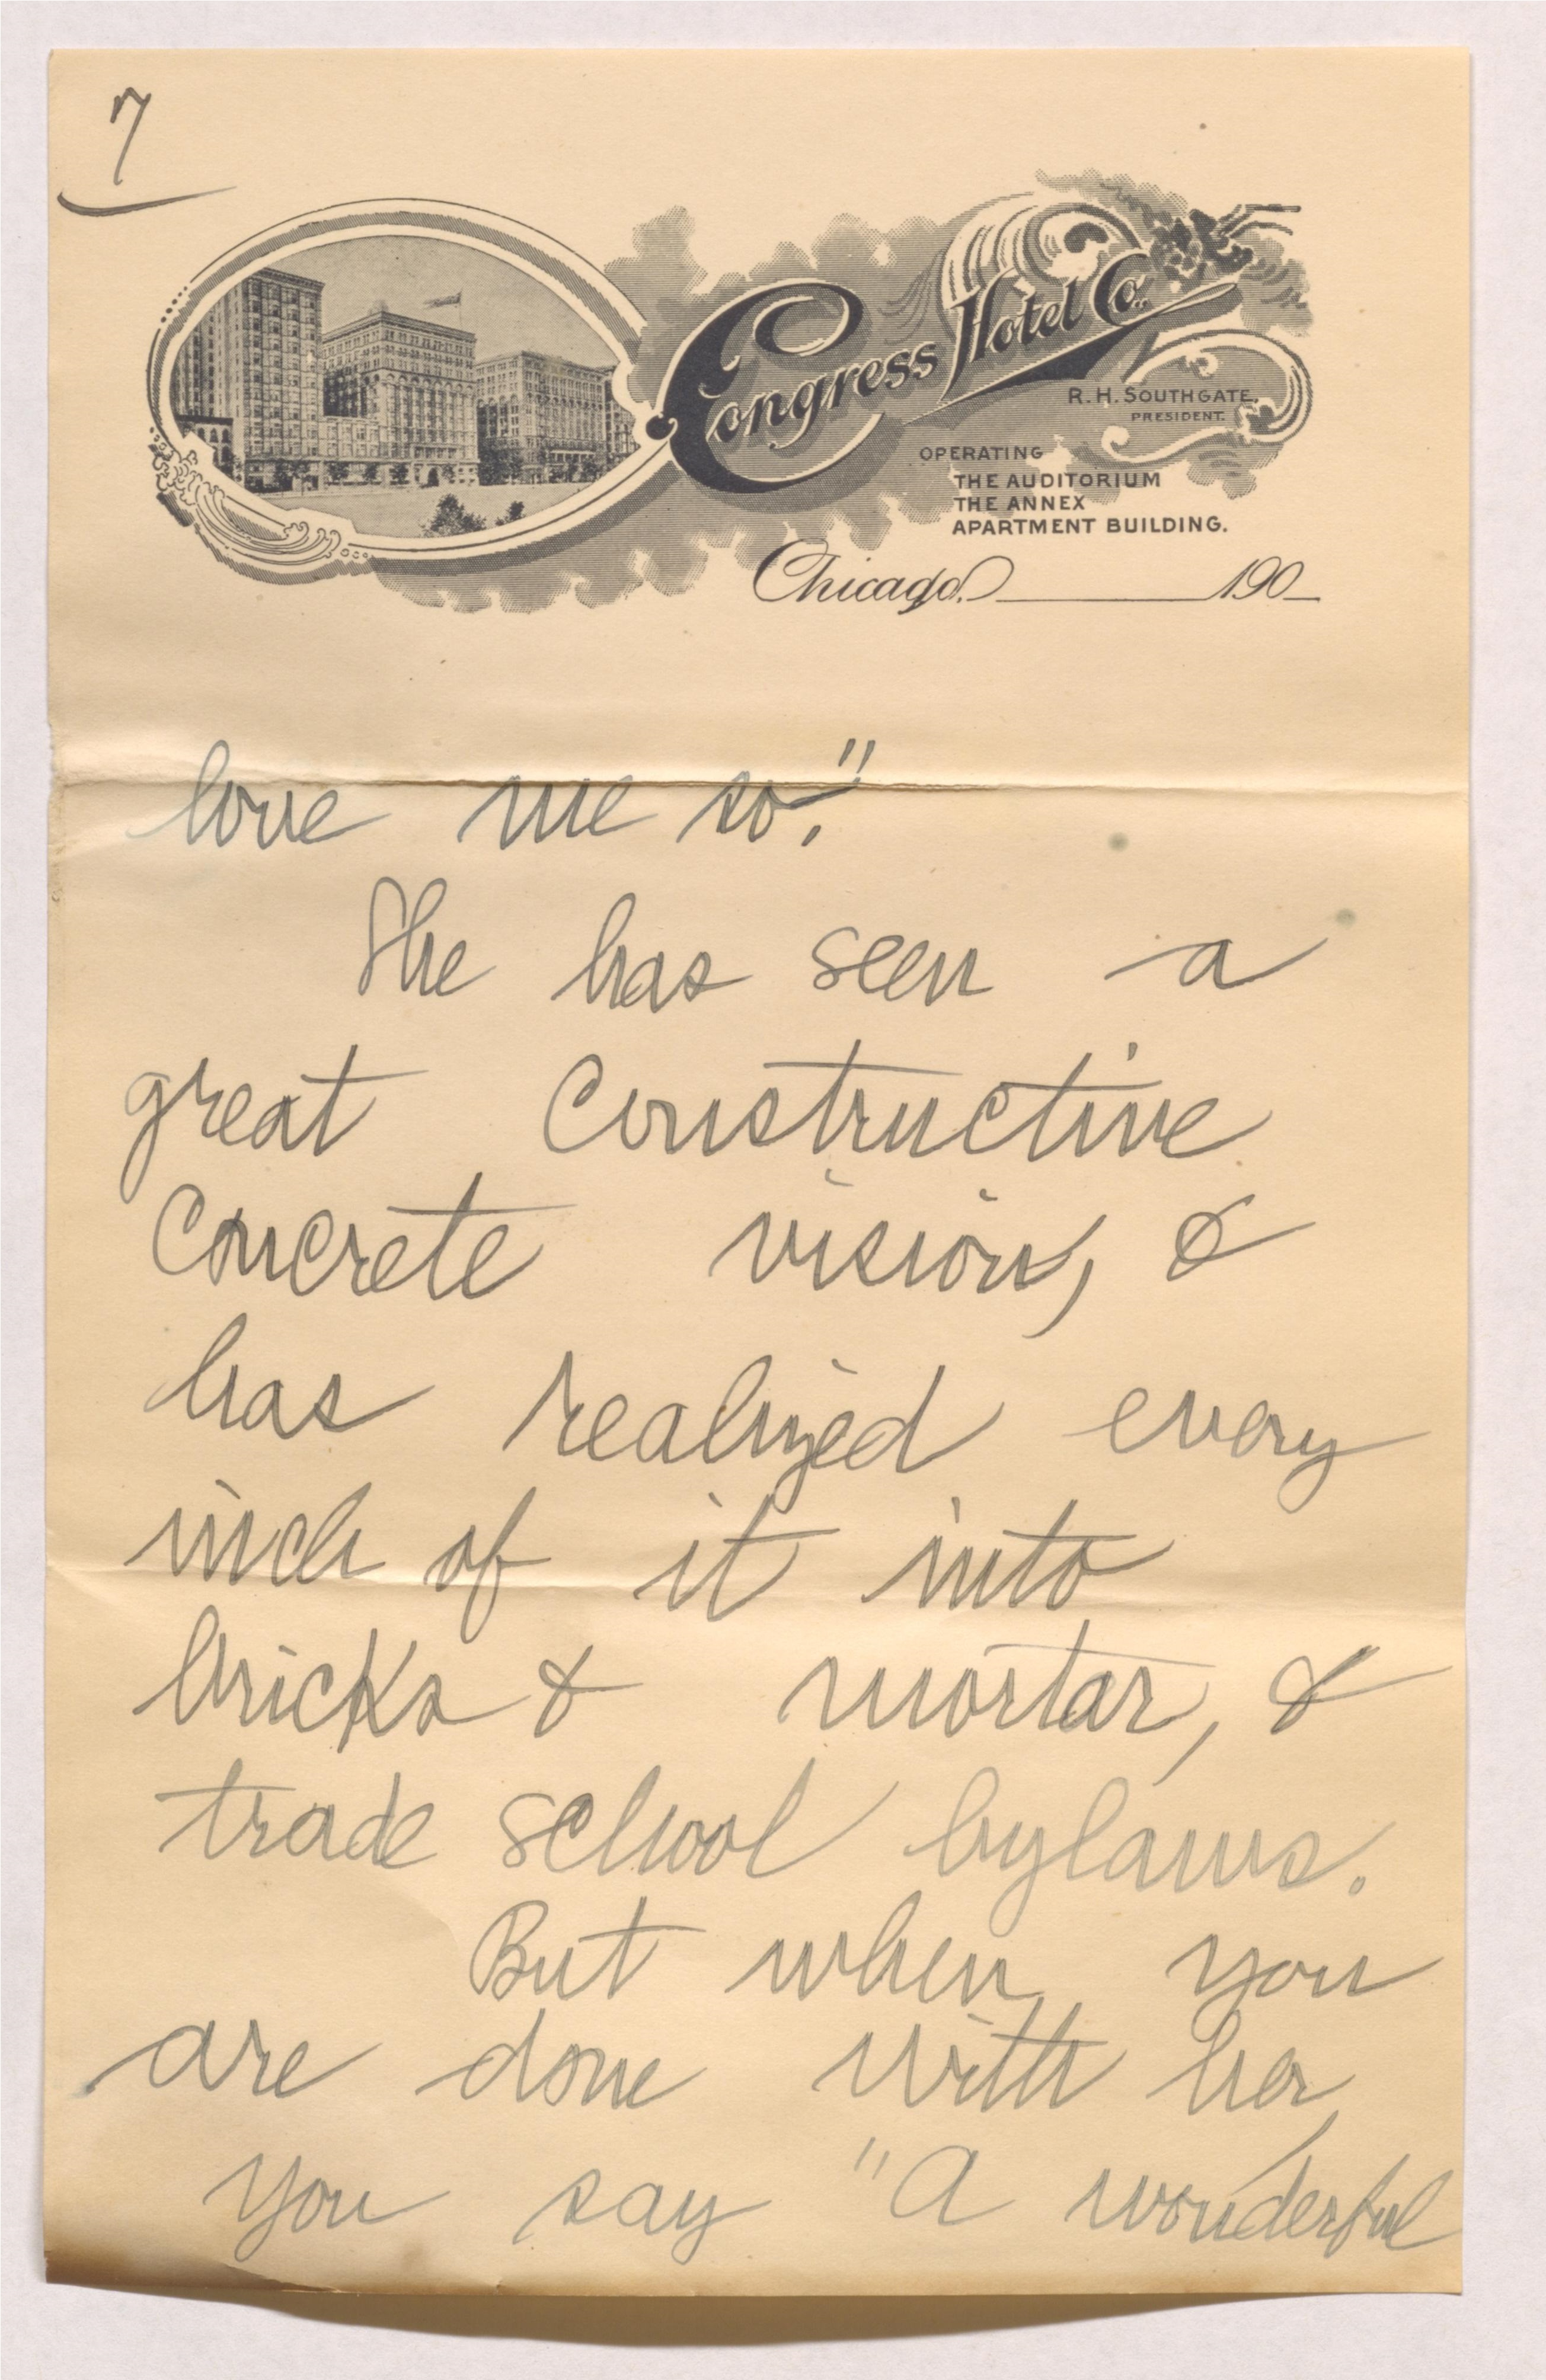 7
Congress Hotel Co.
R. H. SOUTHGATE,
PRESIDENT.
OPERATING
THE AUDITORIUM
THE ANNEX
APARTMENT BUILDING.
Chicago. 190
love me so."
She has seen a
great constructive
concrete vision, &
has realized every
inch of it into
bricks & mortar, &
trade school bylaws.
But when you
are done with her,
you say "A wonderful